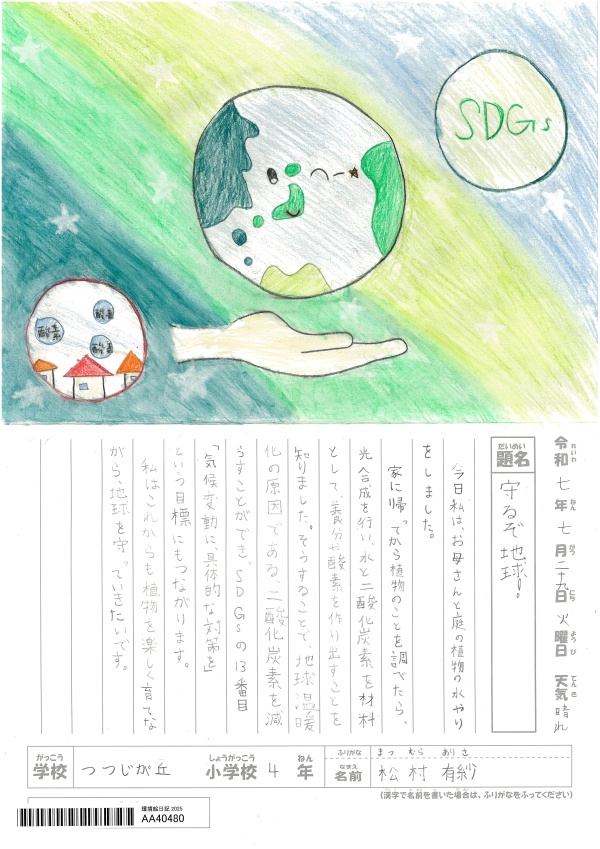 SDGs
酸素
酸素
酸素
令和七年七月二十九日火曜日 天気晴れ
れいわ ねん がつ にち ようび てんき
だいめい
題名
守るぞ地球!
今日私は、お母さんと庭の植物の水やり
をしました。
家に帰ってから植物のことを調べたら、
光合成を行い、水と二酸化炭素を材料
として、養分や酸素を作り出すことを
知りました。そうすることで、地球温暖
化の原因である、二酸化炭素を減
らすことができ、SDGsの13番目
「気候変動に具体的な対策を」
という目標にもつながります。
私はこれからも植物を楽しく育てな
がら、地球を守っていきたいです。
がっこう しょうがっこう ねん
学校 つつじが丘 小学校 4年
ふりがな まつむら ありさ
なまえ
名前 松村 有紗
(漢字で名前を書いた場合は、ふりがなをふってください)
環境絵日記 2025
AA40480